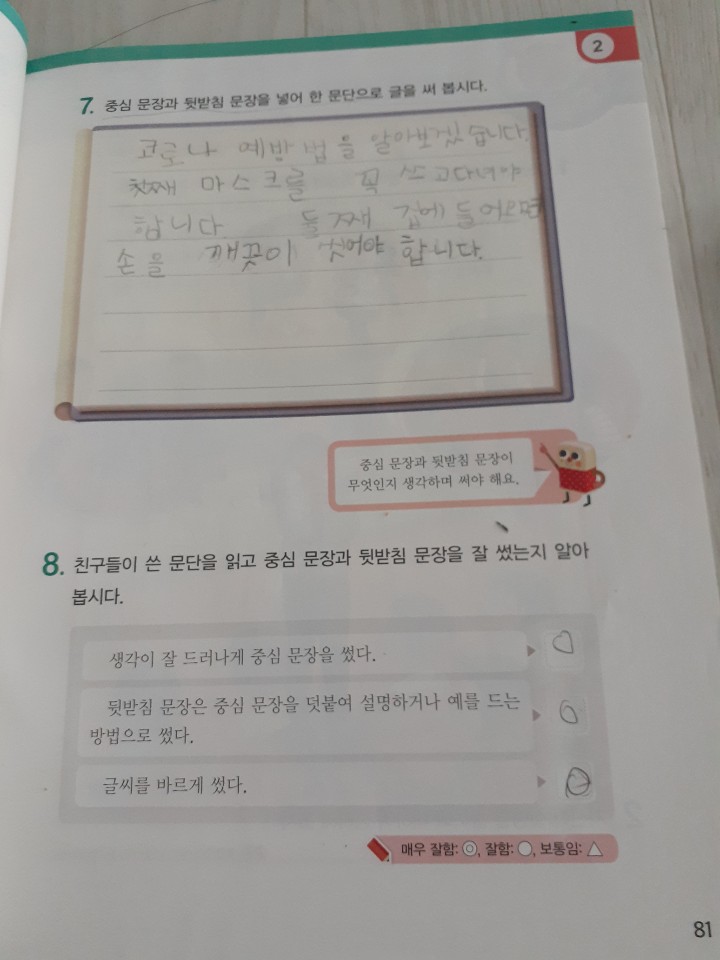 2
7. 중심 문장과 뒷받침 문장을 넣어 한 문단으로 글을 써 봅시다.
코로나 예방법을 알아보겠습니다.
첫째 마스크를 꼭 쓰고다녀야
합니다. 둘째 집에 들어오면
손을 깨끗이 씻어야 합니다.
중심 문장과 뒷받침 문장이
무엇인지 생각하며 써야 해요.
8. 친구들이 쓴 문단을 읽고 중심 문장과 뒷받침 문장을 잘 썼는지 알아
봅시다.
생각이 잘 드러나게 중심 문장을 썼다.
뒷받침 문장은 중심 문장을 덧붙여 설명하거나 예를 드는
방법으로 썼다.
글씨를 바르게 썼다.
매우 잘함: ◎, 잘함: ○, 보통임: △
81